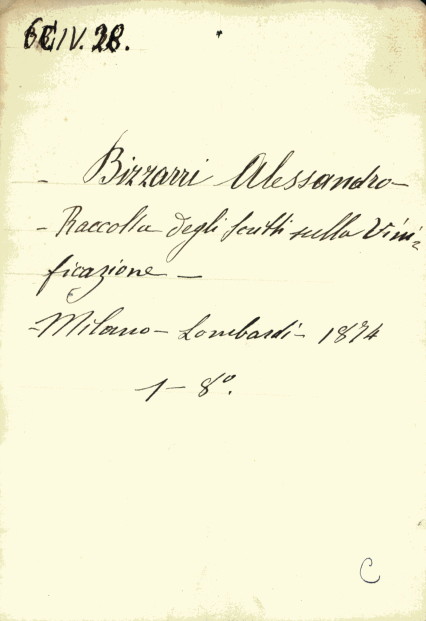 6 C IV. 28.
- Bizzarri Alessandro -
- Raccolta degli scritti sulla Vini=
ficazione -
- Milano - Lombardi - 1874
1 - 8º.
C